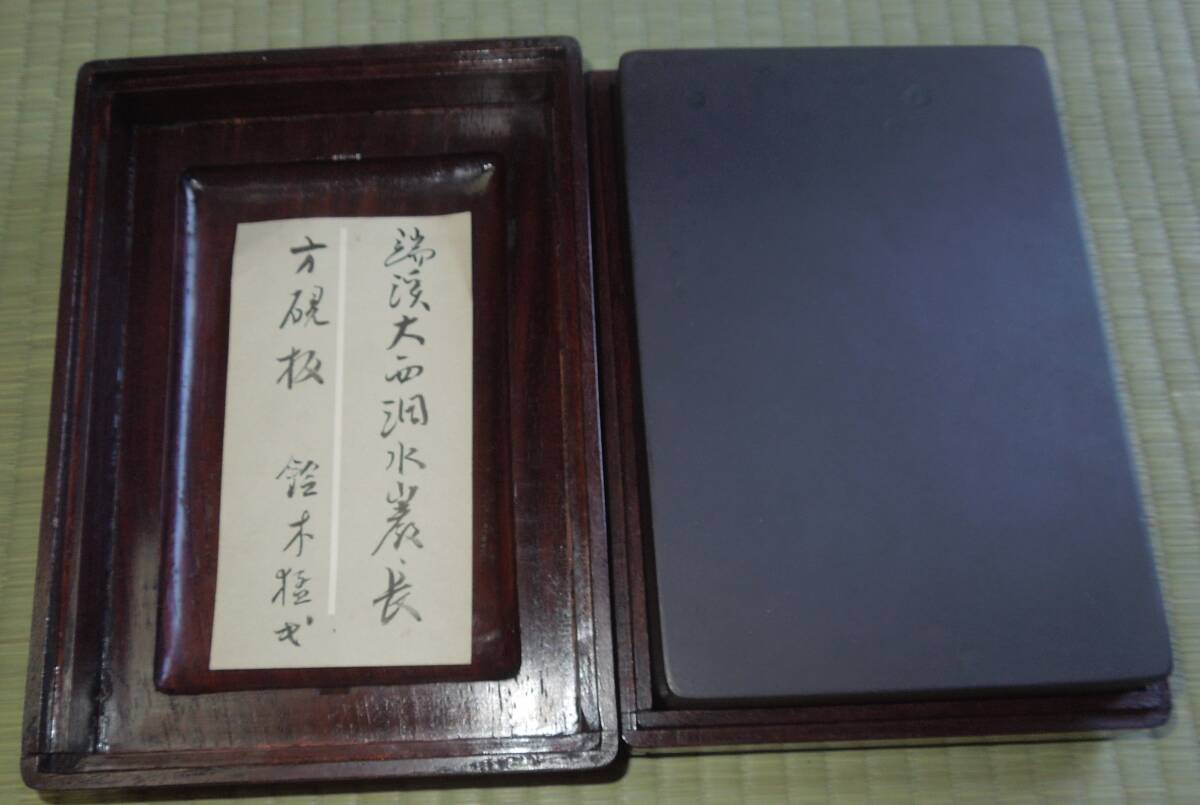 端渓大西洞水巌長
方硯板 鈴木猛